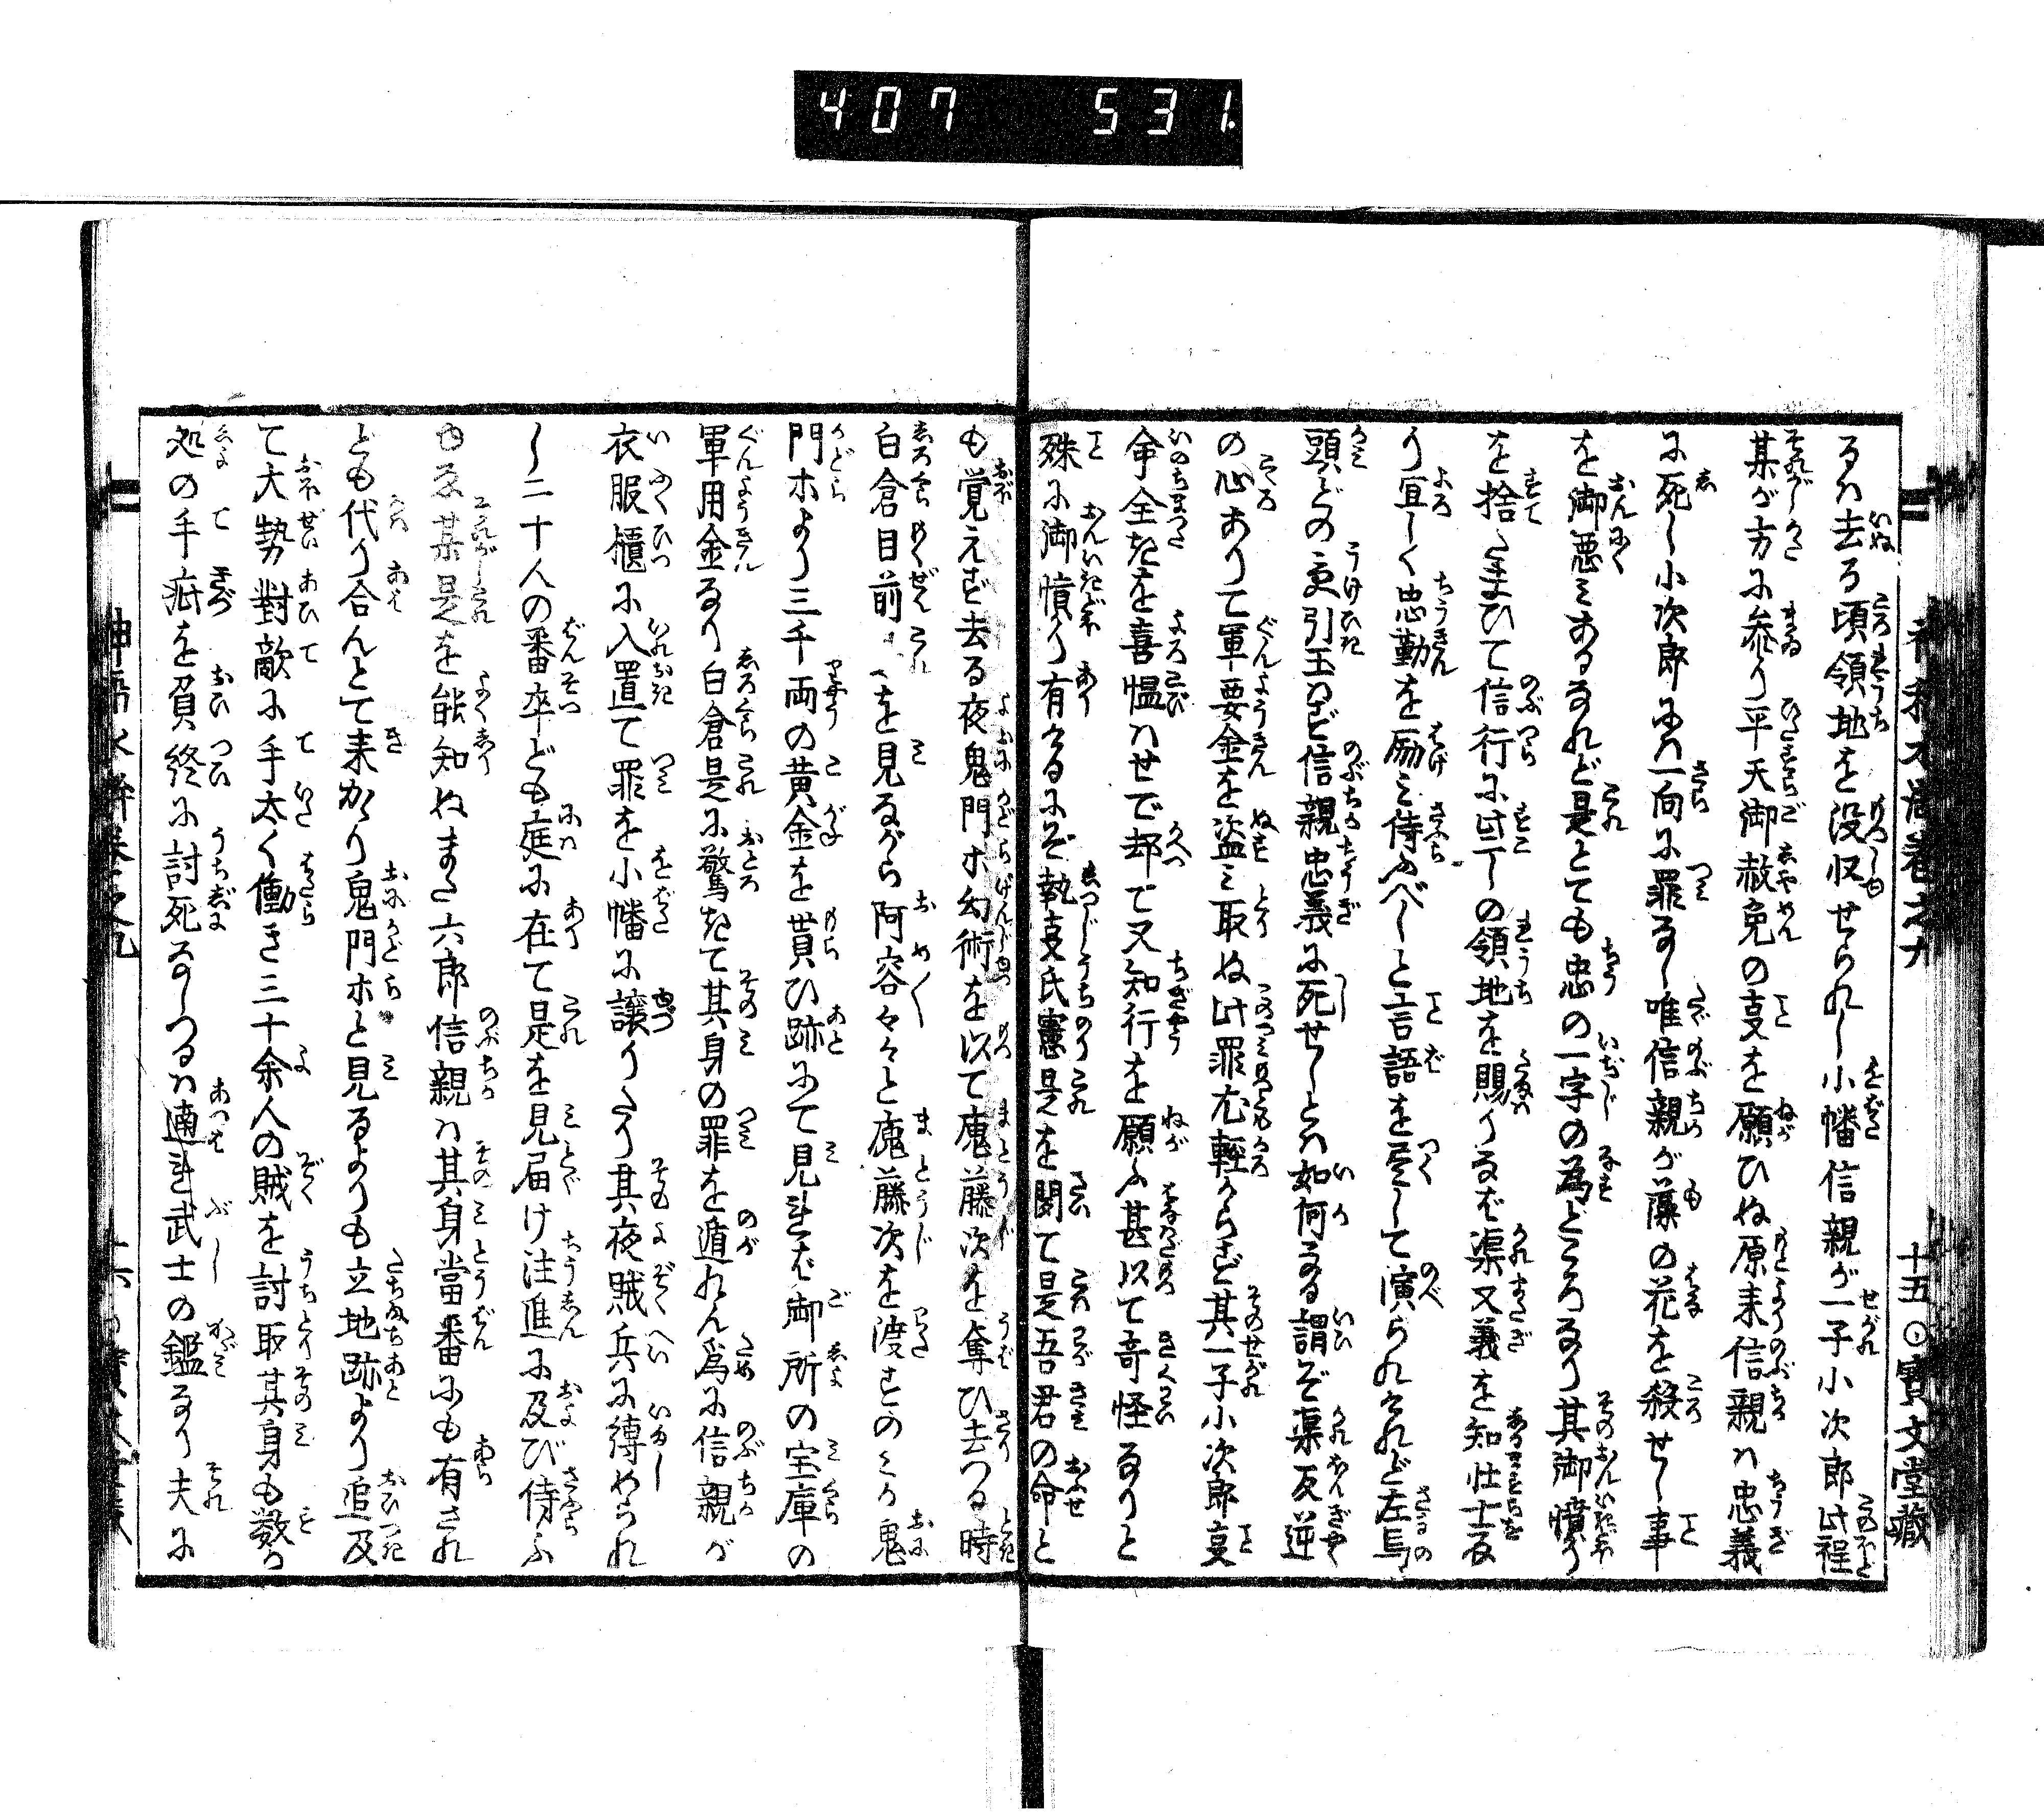 407 531.
十五 ○寶文堂藏
るハ去る頃領地を没収せられし小幡信親が一子小次郎此程
某が方に参り平天御赦免の叓を願ひぬ原来信親ハ忠義
に死し小次郎にハ一向に罪なし唯信親が藻の花を殺せし事
を御悪ミあるなれど是とても忠の一字の為どころなり其御憤り
を捨たまひて信行に此丁の領地を賜りなば渠又義を知壮士反
り宜しく忠勤を励ミ侍ふべしと言語を尽して演られけれど左馬
頭どの更引玉はず信親忠義に死せしとハ如何なる謂ぞ渠反逆
の心ありて軍要金を盗ミ取ぬ此罪尤軽からず其一子小次郎叓
命全きを喜愠ハせで却て又知行を願ふ甚以て奇怪なりと
殊に御憤り有けるにぞ執叓氏憲是を聞て是吾君の命と
も覚えず去る夜鬼門ホ幻術を以て魔藤次を奪ひ去つる時
白倉目前 を見ながら阿容々々と魔藤次を渡すのミか鬼
門ホより三千両の黄金を貰ひ跡にて見れば御所の宝庫の
軍用金なり白倉是に驚きて其身の罪を遁れん為に信親が
衣服櫃に入置て罪を小幡に譲りたり其夜賊兵に縛められ
し二十人の番卒ども庭に在て是を見届け注進に及び侍ふ
ゆゑ某是を能知ぬまた六郎信親ハ其身當番にも有され
ども代り合んとて来かゝり鬼門ホと見るよりも立地跡より追及
て大勢對敵に手太く働き三十余人の賊を討取其身も数か
処の手疵を負終に討死なしつるハ遖れ武士の鑑なり夫に